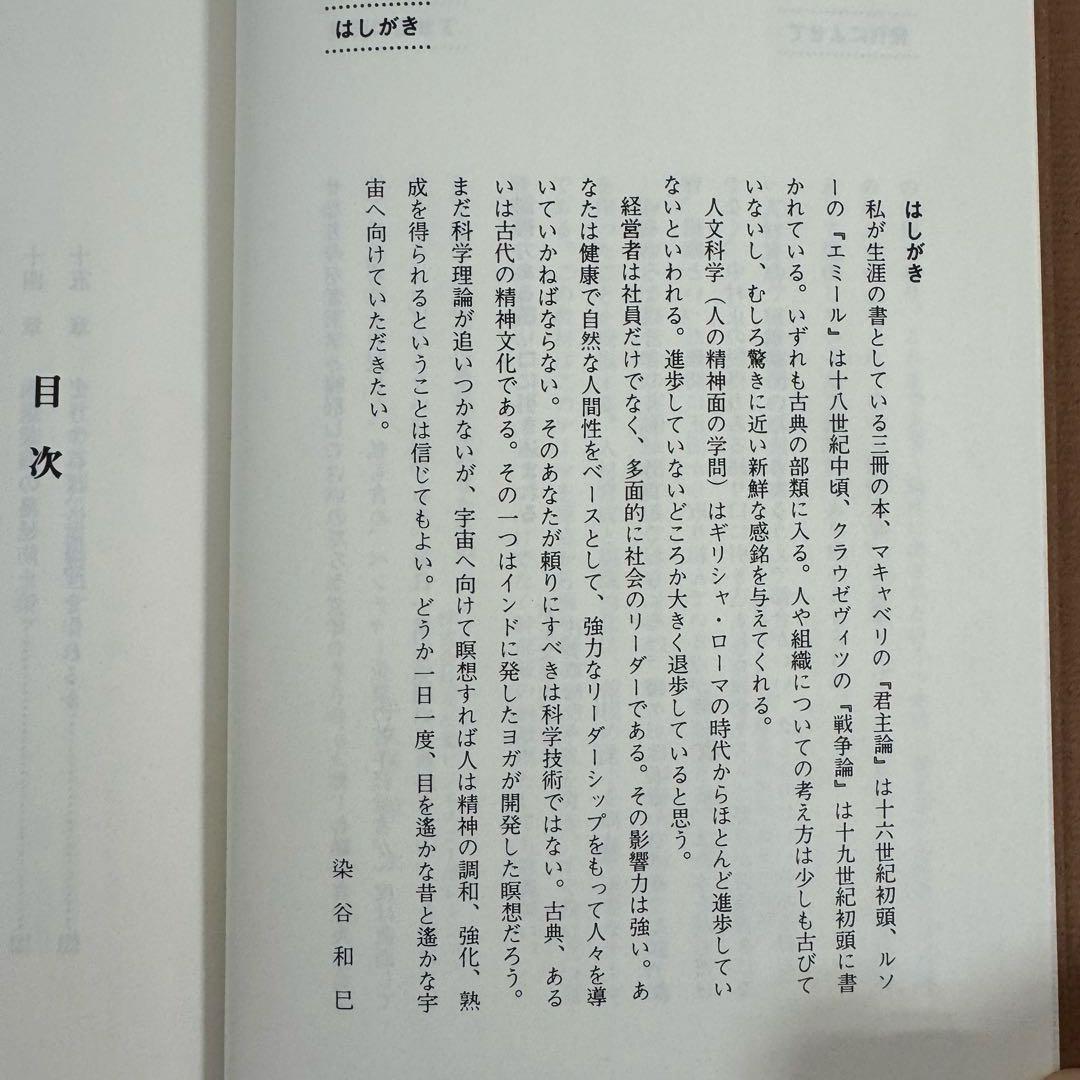 はしがき
はしがき
私が生涯の書としている三冊の本、マキャベリの『君主論』は十六世紀初頭、ルソ
ーの『エミール』は十八世紀中頃、クラウゼヴィツの『戦争論』は十九世紀初頭に書
かれている。いずれも古典の部類に入る。人や組織についての考え方は少しも古びて
いないし、むしろ驚きに近い新鮮な感銘を与えてくれる。
人文科学（人の精神面の学問）はギリシャ・ローマの時代からほとんど進歩してい
ないといわれる。進歩していないどころか大きく退歩していると思う。
経営者は社員だけでなく、多面的に社会のリーダーである。その影響力は強い。あ
なたは健康で自然な人間性をベースとして、強力なリーダーシップをもって人々を導
いていかねばならない。そのあなたが頼りにすべきは科学技術ではない。古典、ある
いは古代の精神文化である。その一つはインドに発したヨガが開発した瞑想だろう。
まだ科学理論が追いつかないが、宇宙へ向けて瞑想すれば人は精神の調和、強化、熟
成を得られるということは信じてもよい。どうか一日一度、目を遙かな昔と遙かな宇
宙へ向けていただきたい。
染谷和巳
目次